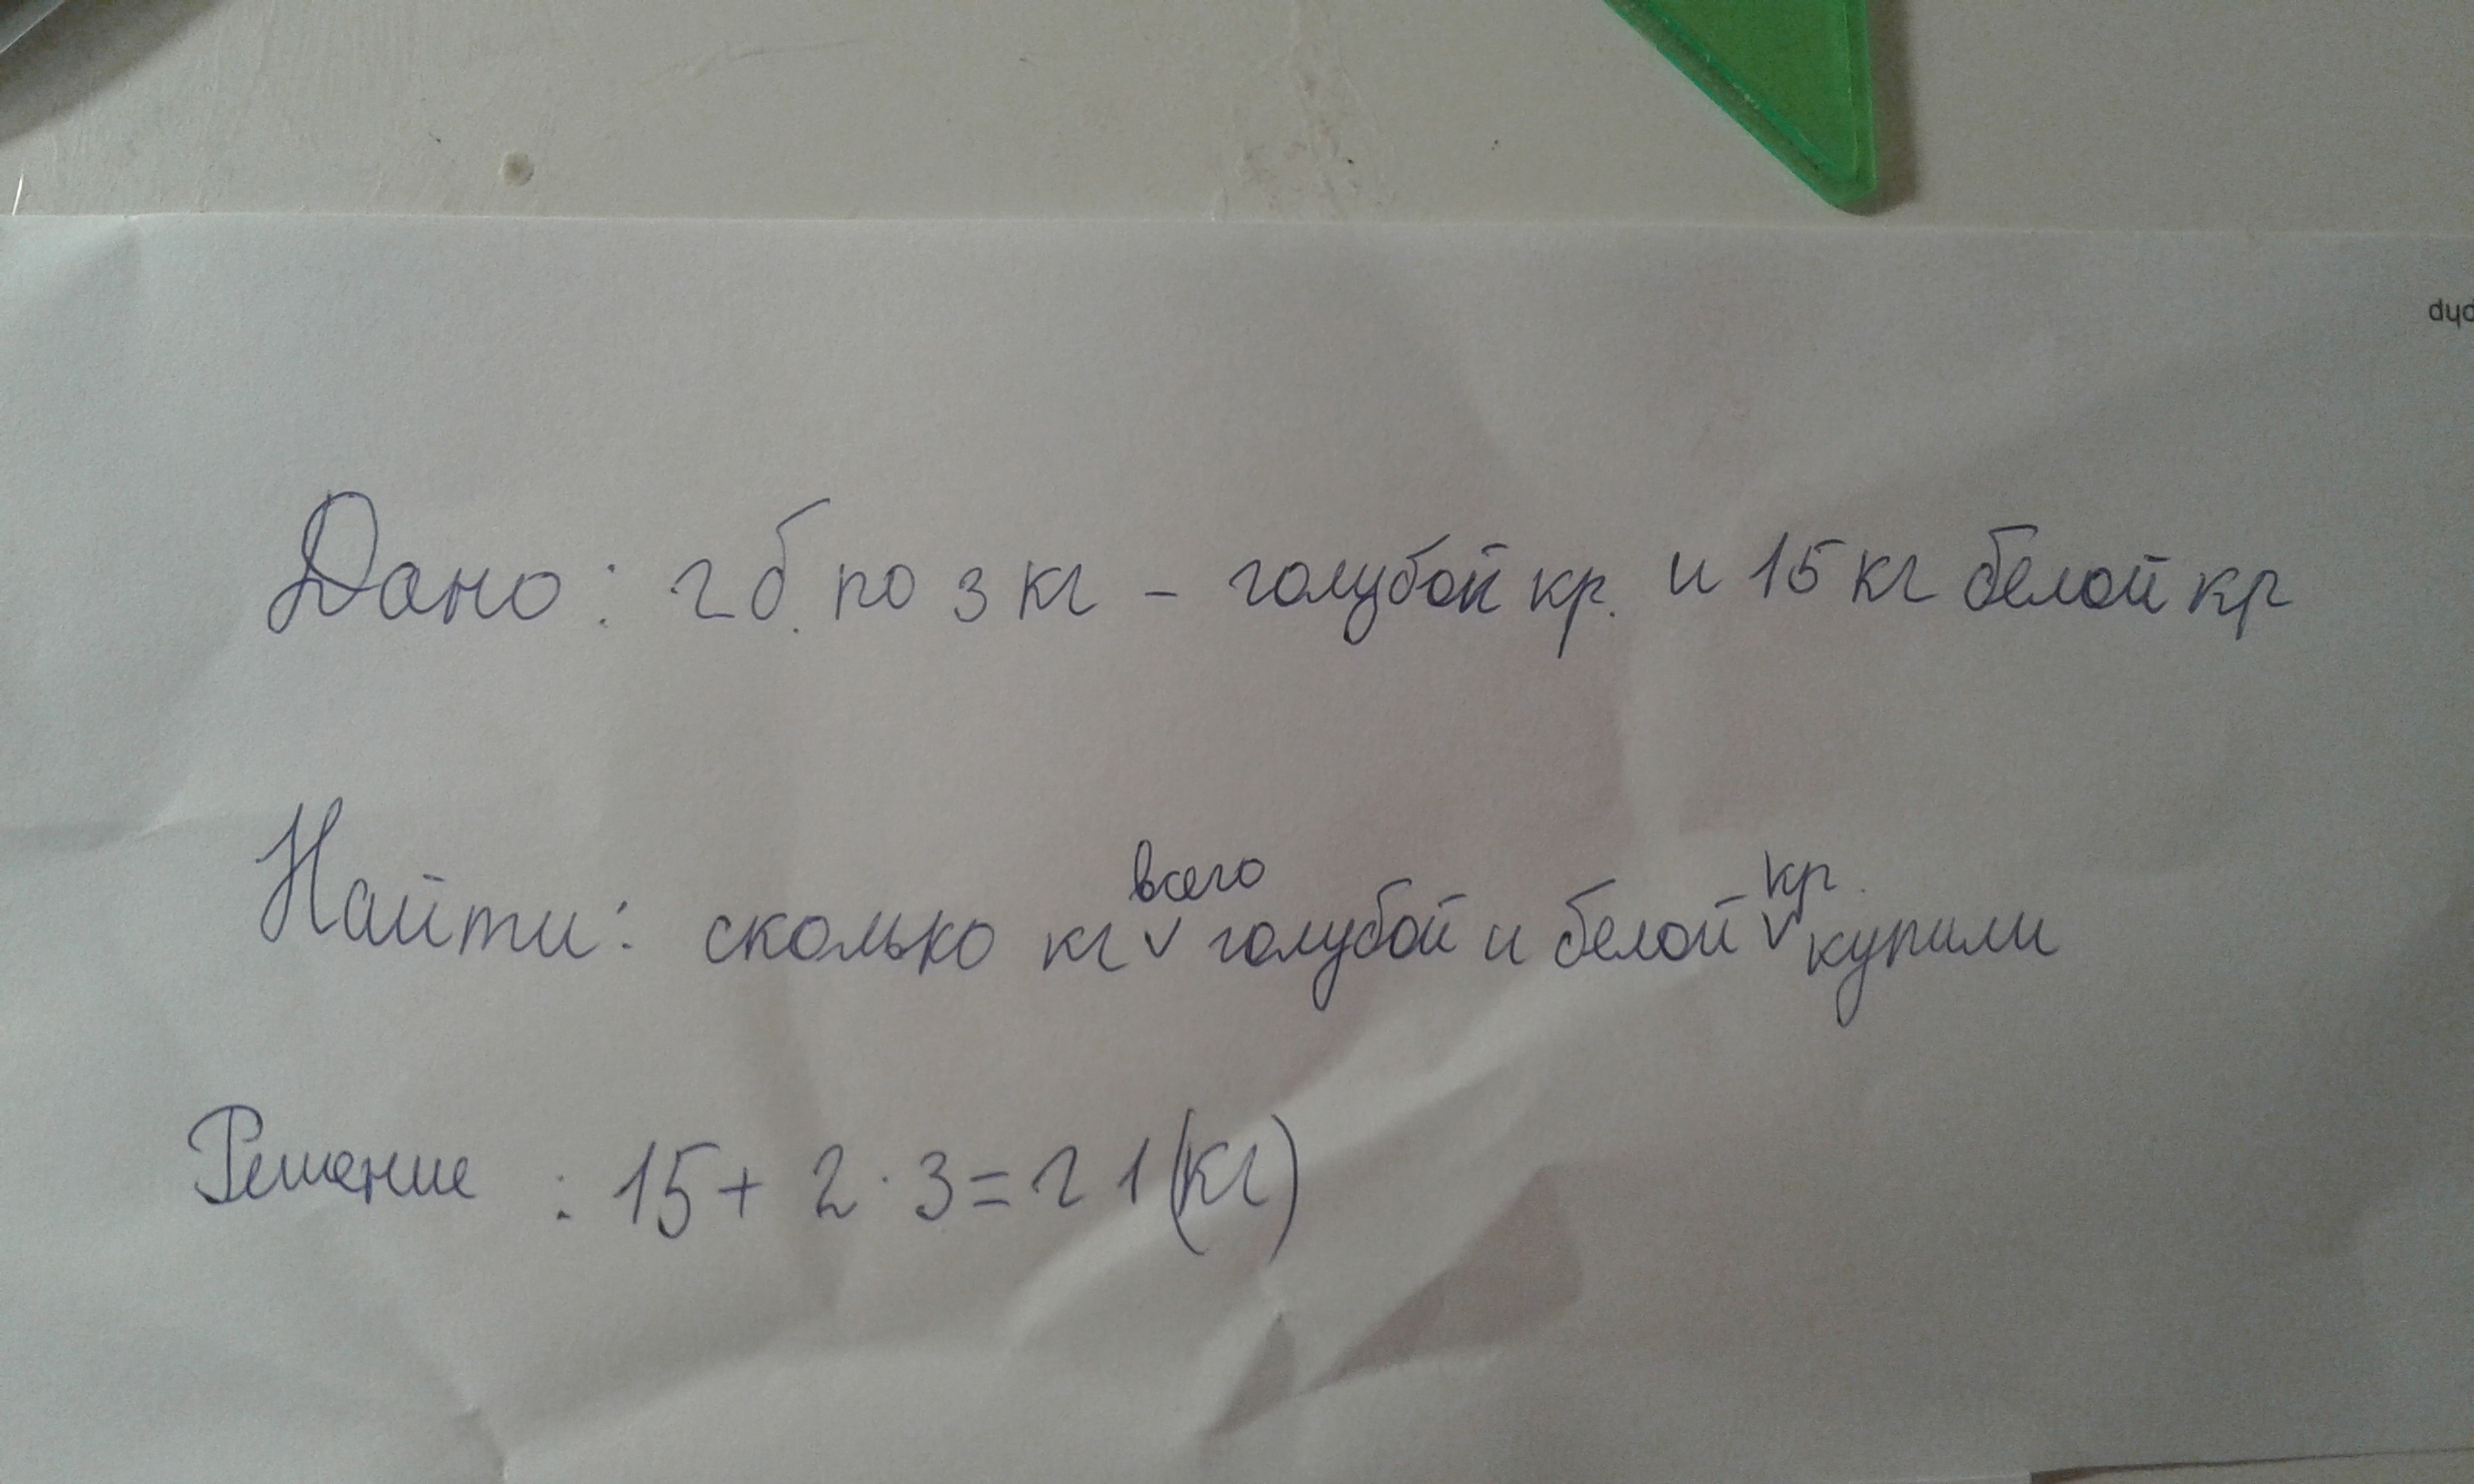 Дано: 2 б. по 3 кг - голубой кр. и 15 кг белой кр
Найти: сколько кг всего голубой и белой кр. купили
Решение : 15 + 2 · 3 = 21 (кг)